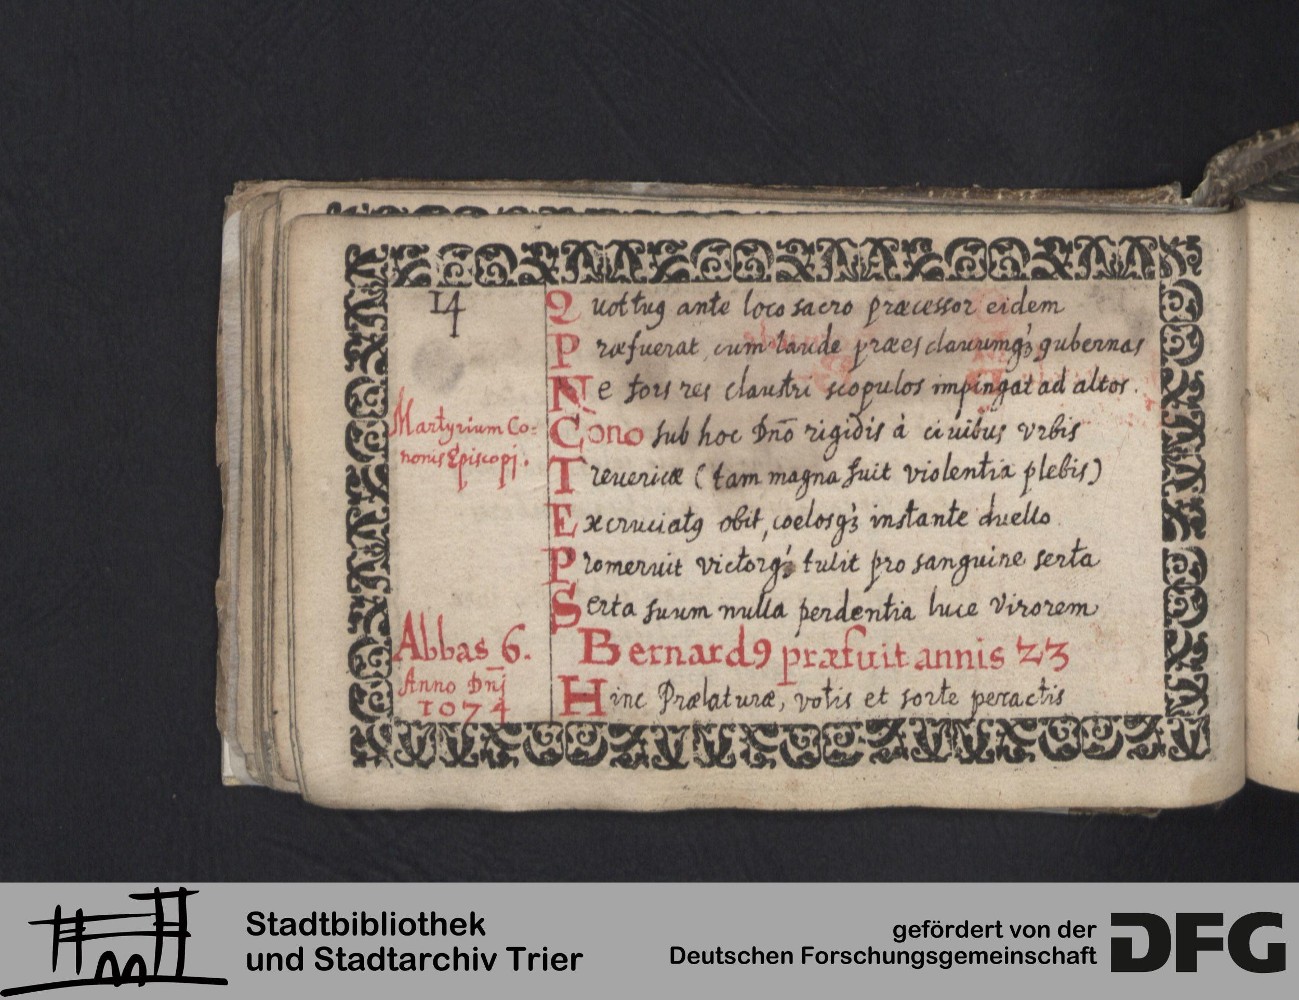 14
Quottꝰ ante loco sacro præcessor eidem
Præfuerat, cum laude præes clauumqꝫ gubernas
Ne fors res claustri scopulos impingat ad altos.
Martyrium Co-
nonis Episcopj.
Cono sub hoc Dn̄o rigidis à ciuibus vrbis
Treuericæ (tam magna fuit violentia plebis)
Excruciatꝰ obit, coelosqꝫ instante duello
Promeruit victorqꝫ tulit pro sanguine serta
Serta suum nulla perdentia luce virorem
Abbas 6.
Bernardꝰ præfuit annis 23
Anno Dn̄j
1074
Hinc Prælaturæ, votis et sorte peractis
Stadtbibliothek
und Stadtarchiv Trier
gefördert von der
Deutschen Forschungsgemeinschaft
DFG